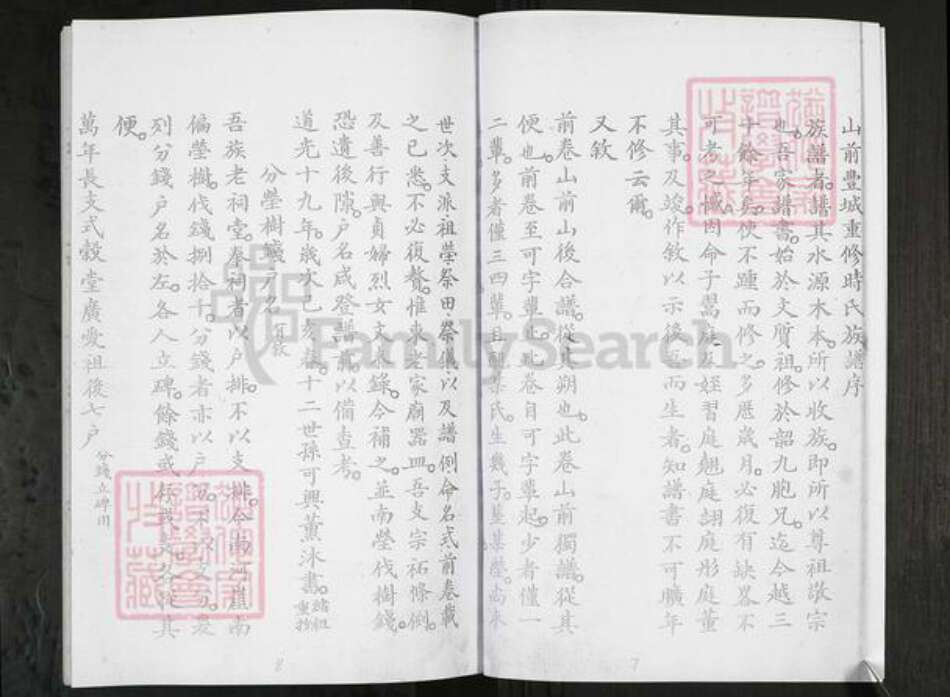 山前豐城重修時氏族譜序
族譜者譜其水源木本。所以收族。即所以尊祖敬宗
也。吾家譜書。始於文質祖。修於韶九胞兄。迄今越三
十餘年矣。使不踵而修之。多歷歲月。必復有缺畧不
可考之憾。因命子暠庭及姪習庭翹庭詡庭彤庭董
其事。及竣。作敘以示後。而生者。知譜書不可曠年
不修云爾。
又敘
前卷山前山後合譜。從其朔也。此卷山前獨譜。從其
便也。前卷至可字輩止。此卷自可字輩起。少者僅一
二輩。多者僅三四輩。且配某氏。生幾子。墓某塋。尚未
世次支派祖塋祭田祭儀以及譜例命名式前卷載
之已悉。不必復贅。惟東老家廟器皿。吾支宗祏條例。
及善行與貞婦烈女文未錄。今補之。並南塋伐樹錢。
恐遺後隙。戶名咸登譜藏。以備查考。
道光十九年。歲次己亥春。十二世孫可興薰沐書。緒組重抄
分塋樹錢戶名
吾族老祠堂。奉祠者以戶排。不以支排。今
偏塋樹。伐錢捌拾千。分錢者亦以戶
列分錢戶名於左。各人立碑。餘錢或存
便。
萬年長支式穀堂廣愛祖後七戶 分錢立碑用
FamilySearch
7
8